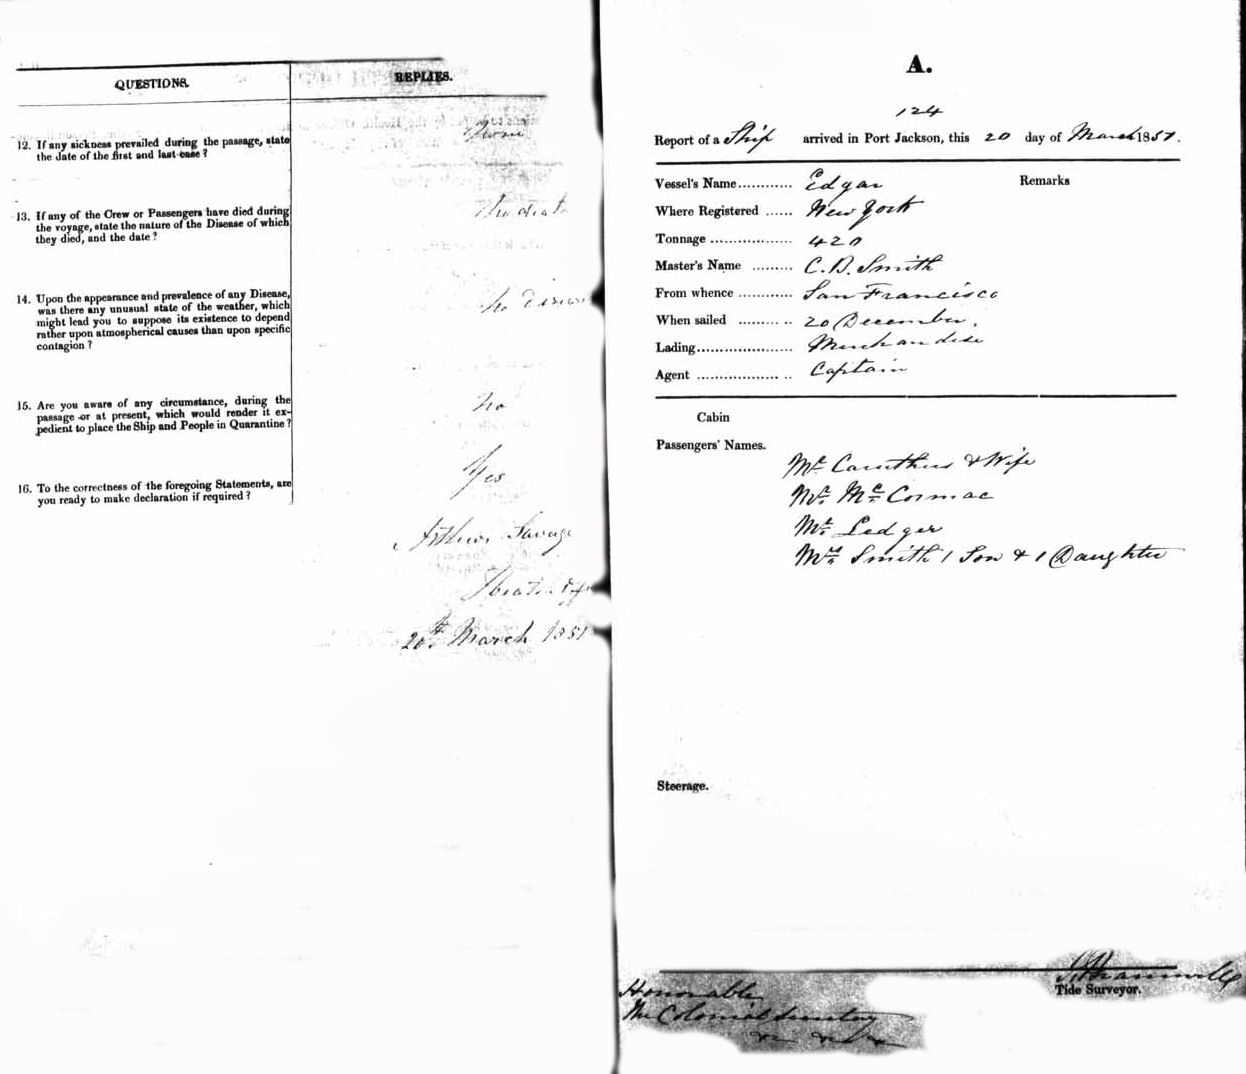 QUESTIONS.
REPLIES.
12. If any sickness prevailed during the passage, state
the date of the first and last case?
None
13. If any of the Crew or Passengers have died during
the voyage, state the nature of the Disease of which
they died, and the date?
No death
14. Upon the appearance and prevalence of any Disease,
was there any unusual state of the weather, which
might lead you to suppose its existence to depend
rather upon atmospherical causes than upon specific
contagion?
No disease
15. Are you aware of any circumstance, during the
passage or at present, which would render it ex-
pedient to place the Ship and People in Quarantine?
No
16. To the correctness of the foregoing Statements, are
you ready to make declaration if required?
Yes
Arthur Savage
Health
20th. March 1851
A.
124
Report of a Ship arrived in Port Jackson, this 20 day of March 1851.
Vessel's Name............ Edgar
Remarks
Where Registered ...... New York
Tonnage .................. 420
Master's Name ......... C. D. Smith
From whence ............ San Francisco
When sailed ............ 20 December.
Lading...................... Merchandise
Agent ..................... Captain
Cabin
Passengers' Names.
Mr. Caruthers & Wife
Mr. McCormac
Mr. Ledger
Mrs. Smith 1 Son & 1 Daughter
Steerage.
Tide Surveyor.
Honorable
The Colonial Secretary